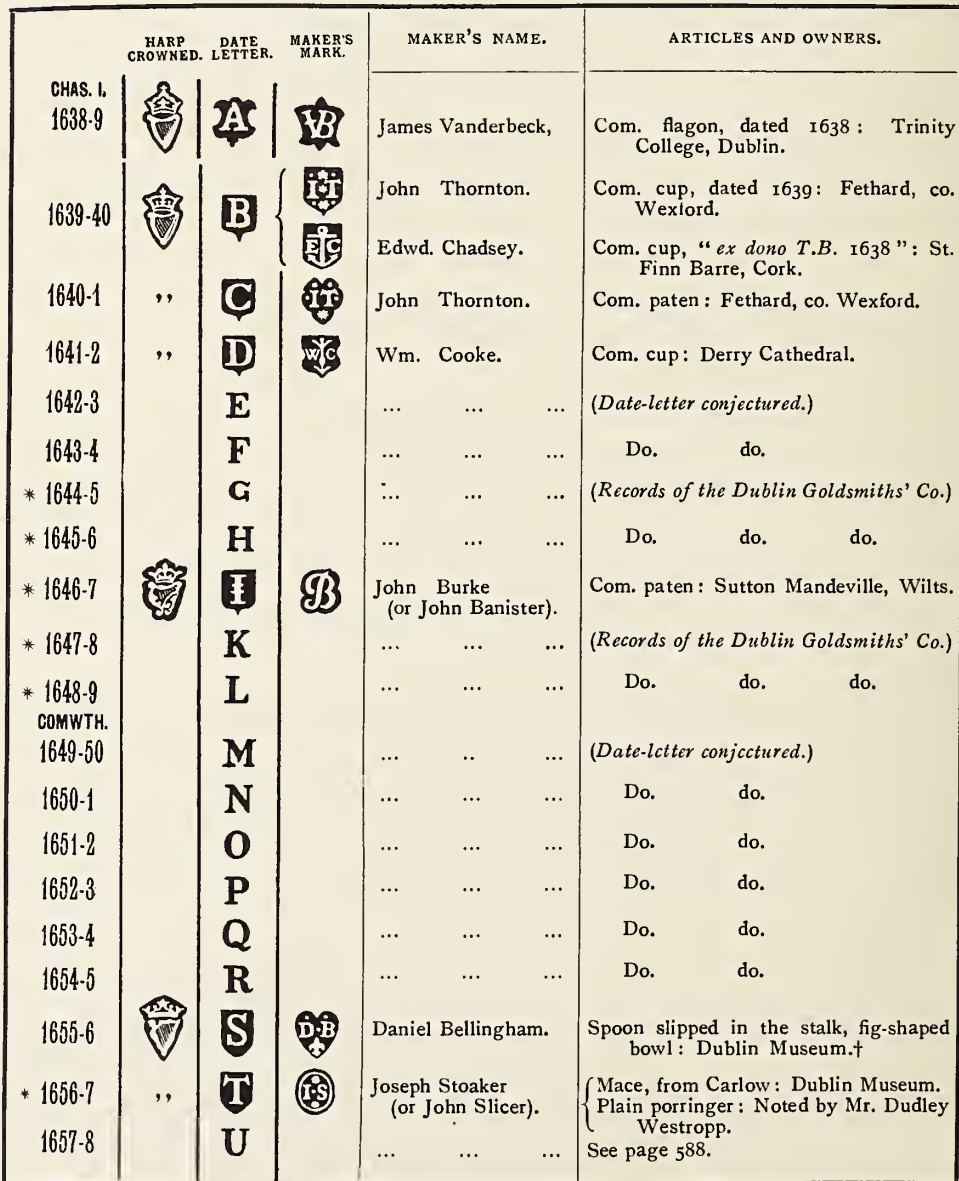 HARP CROWNED. DATE LETTER. MAKER'S MARK. MAKER'S NAME. ARTICLES AND OWNERS.
CHAS. I.
1638-9 A VB James Vanderbeck, Com. flagon, dated 1638: Trinity
College, Dublin.
1639-40 B IT John Thornton. Com. cup, dated 1639: Fethard, co.
Wexford.
EC Edwd. Chadsey. Com. cup, "ex dono T.B. 1638": St.
Finn Barre, Cork.
1640-1 ,, C IT John Thornton. Com. paten: Fethard, co. Wexford.
1641-2 ,, D WC Wm. Cooke. Com. cup: Derry Cathedral.
1642-3 E ... ... ... (Date-letter conjectured.)
1643-4 F ... ... ... Do. do.
* 1644-5 G ... ... ... (Records of the Dublin Goldsmiths' Co.)
* 1645-6 H ... ... ... Do. do. do.
* 1646-7 I B John Burke Com. paten: Sutton Mandeville, Wilts.
(or John Banister).
* 1647-8 K ... ... ... (Records of the Dublin Goldsmiths' Co.)
* 1648-9 L ... ... ... Do. do. do.
COMWTH.
1649-50 M ... .. ... (Date-letter conjectured.)
1650-1 N ... ... ... Do. do.
1651-2 O ... ... ... Do. do.
1652-3 P ... ... ... Do. do.
1653-4 Q ... ... ... Do. do.
1654-5 R ... ... ... Do. do.
1655-6 S D·B Daniel Bellingham. Spoon slipped in the stalk, fig-shaped
bowl: Dublin Museum.†
* 1656-7 ,, T I·S Joseph Stoaker Mace, from Carlow: Dublin Museum.
(or John Slicer). Plain porringer: Noted by Mr. Dudley
Westropp.
1657-8 U ... ... ... See page 588.